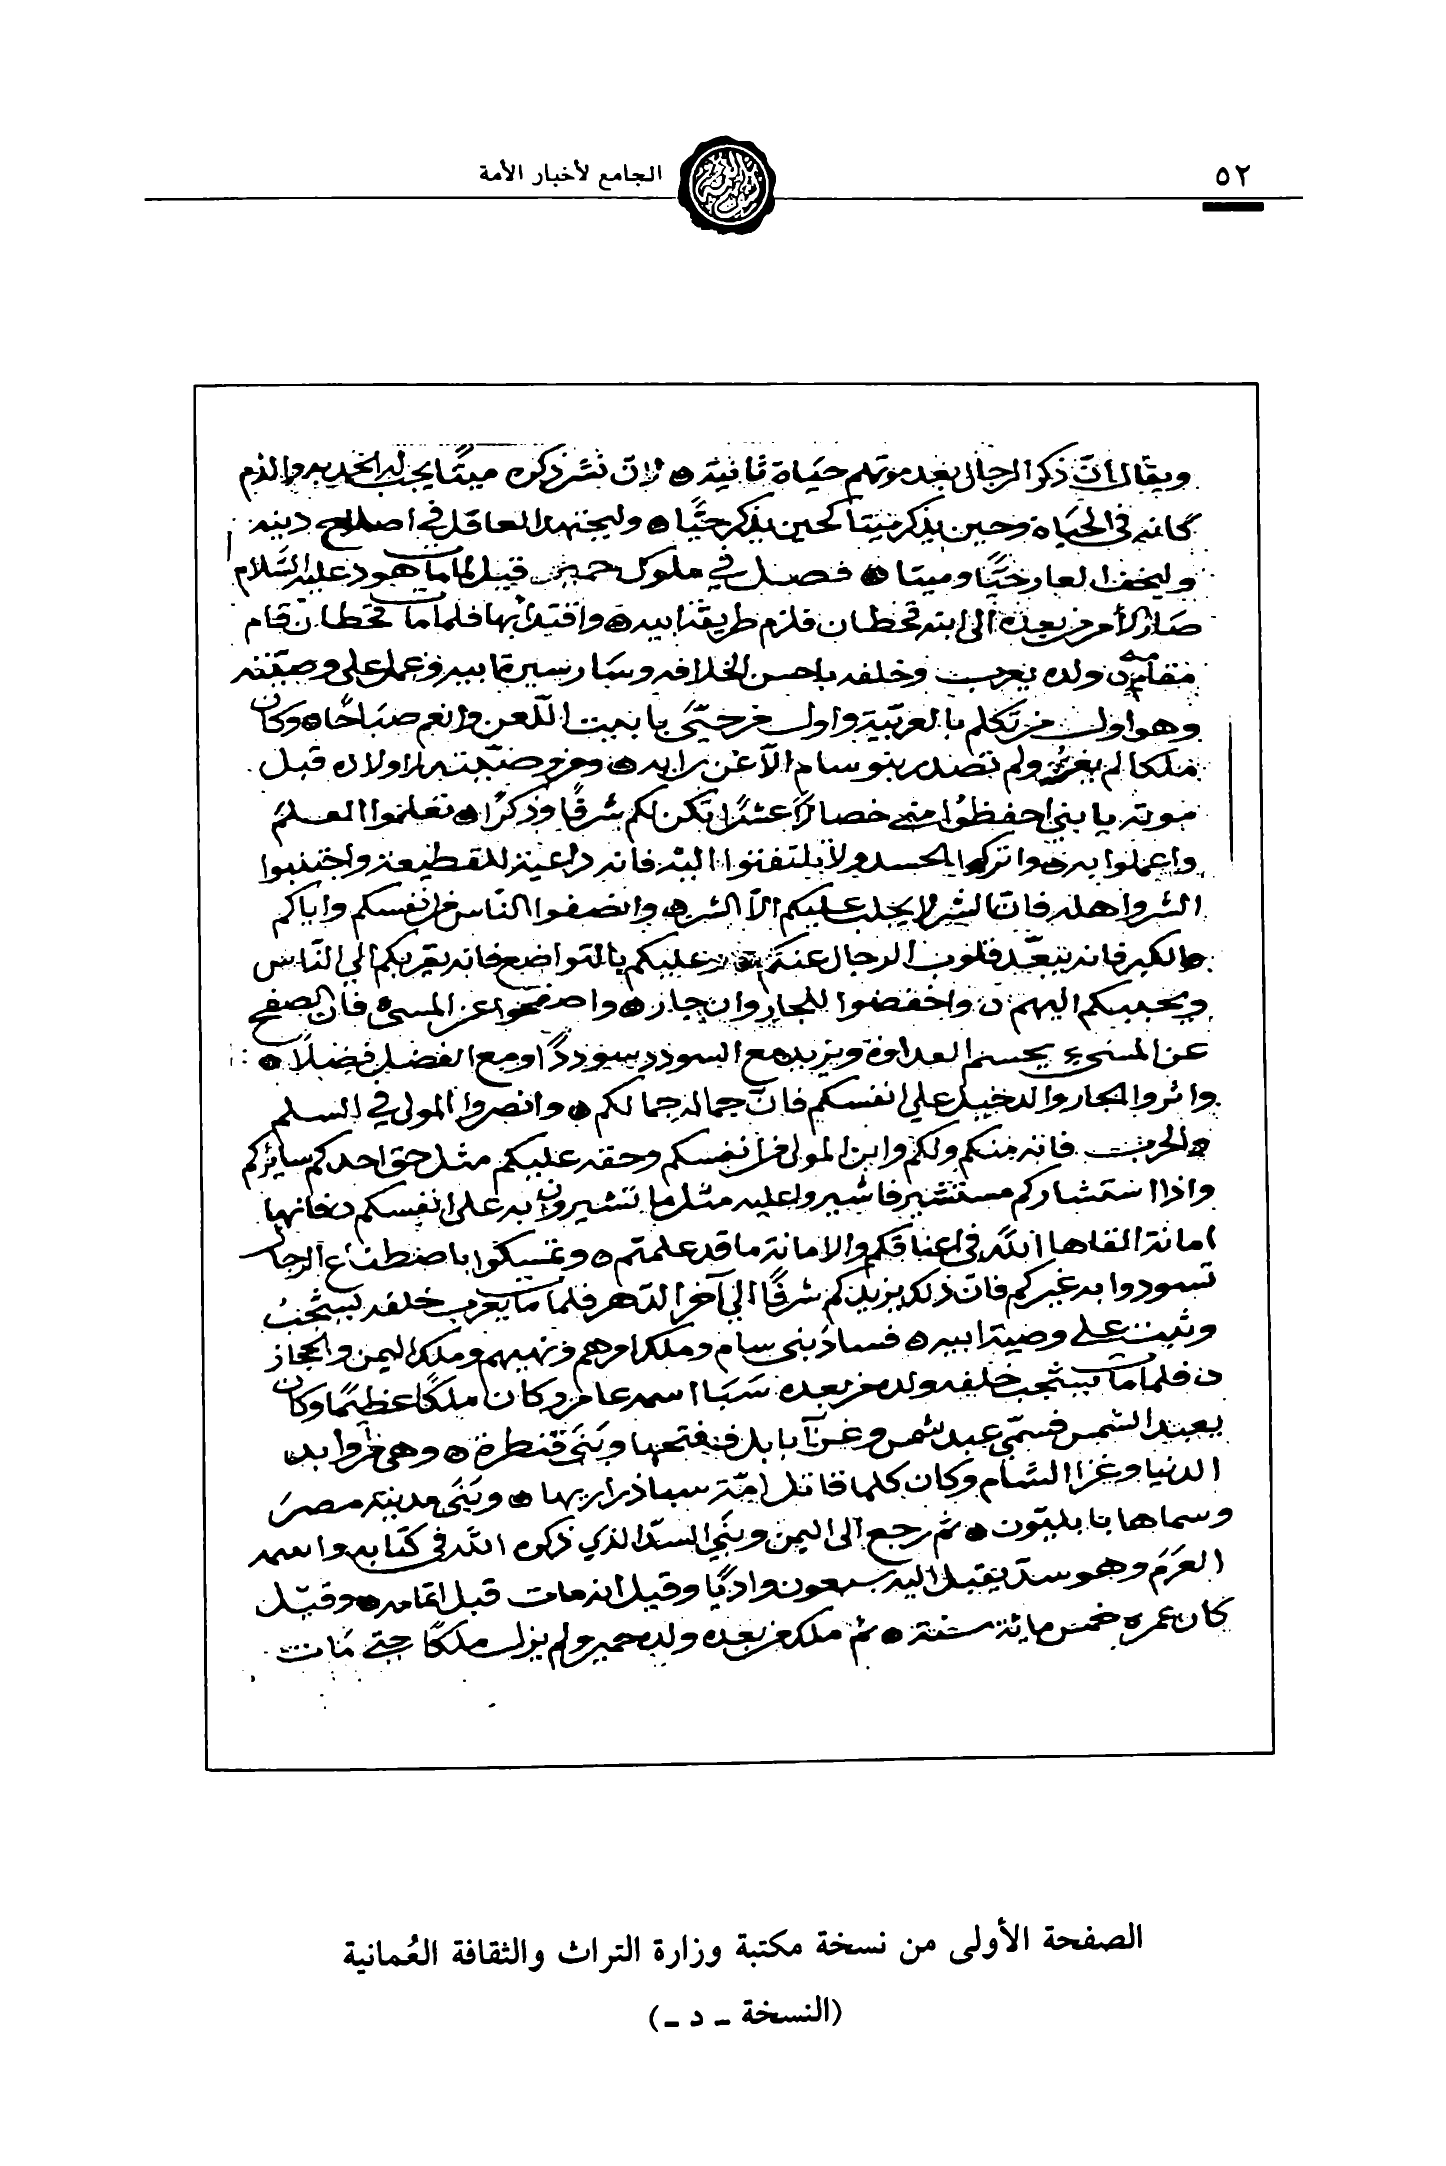 ٥٢
الجامع لأخبار الأمة
ويقال ان ذكر الرجال بعد موتهم حياة ثانية لان نشر ذكره ميتًا يجب له الحمد والذم
كانه في الحياة وحين يذكر ميتا كحين يذكر حيًّا وليجتهد العاقل في اصلاح دينه
وليخف العار حيًّا وميتا فصل في ملوك حمير قيل لما مات هود عليه السَّلام
صَار الأمر من بعده الى ابنه قحطان فلزم طريقة ابيه واقتدا بها فلما مات قحطان قام
مقامه ولده يعرب وخلفه باحسن الخلافه وسَار سيرة ابيه وعمل على وصيّته
وهو اول من تكلم بالعربيّة واول من حيّي بابيت اللّعن وانعم صبَاحًا وكان
ملكا لم يغز ولم تصدر بنو سام الّا عن رايه ومن وصيّته لاولاده قبل
موته يا بني احفظوا مني خصالًا عشرًا تكن لكم شرفًا وذكرًا تعلموا العلم
واعملوا به واتركوا الحسد ولا تلتفتوا اليه فانه داعية للقطيعة واجتنبوا
الشر واهله فانّ الشر لا يجلب عليكم الّا الشر وانصفوا النّاس من انفسكم واياكم
والكبر فانه يبعّد قلوب الرجال عنكم عليكم بالتواضع فانه يقربكم الي النّاس
ويحببكم اليهم واخفضوا للجار وان جار واصفحوا عن المسيء فان الصفح
عن المسيء يحسم العداوة ويزيد مع السودد سوددًا ومع الفضل فضلًا
واثروا الجار والدخيل علي انفسكم فانّ جماله جمالكم وانصروا المولي في السلم
والحرب فانه منكم ولكم وابن المولى من انفسكم وحقه عليكم مثل حق احدكم سايركم
واذا استشاركم مستشير فاشيروا عليه مثل ما تشيرون به على انفسكم فانها
امانة القاها اللّه في اعناقكم والامانة ما قد علمتم وتمسكوا باصطناع الرجال
تسودوا به غيركم فان ذلك يزيدكم شرفًا الي آخر الدّهر فلما مات يعرب خلفه يشجب
وثبت على وصية ابيه فسادَ بني سام وملك امرهم ونهيهم وملك اليمن والحجاز
فلما مات يشجب خلفه ولده من بعده سَبَا اسمه عامر وكان ملكًا عظيمًا وكان
يعبد الشمس فسمّي عبد شمس وغزا بابل ففتحها وبَنَي قنطرة وهي من اوابد
الدنيا وغزا الشام وكان كلما قاتل امّة سبا ذراريها وبَنَي مدينة مصرَ
وسماها بابليون ثم رجع الى اليمن وبَنَي السدّ الذي ذكره اللّه في كتابه واسمه
العَرَم وهو سدّ يقبل اليه سبعون واديًا وقيل انه مات قبل اتمامه وقيل
كان عمره خمس مائة سنة ثم ملك من بعده ولده حمير ولم يزل ملكًا حتي مَات
الصفحة الأولى من نسخة مكتبة وزارة التراث والثقافة العُمانية
(النسخة ـ د ـ)